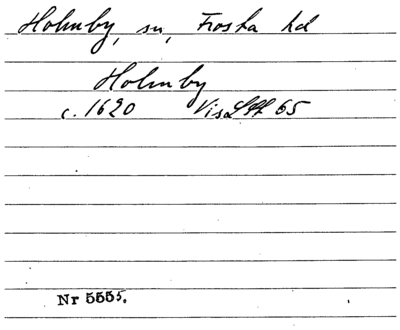 Holmby, sn, Frosta hd
Holmby
c. 1620 Visa 65
Nr 5555.